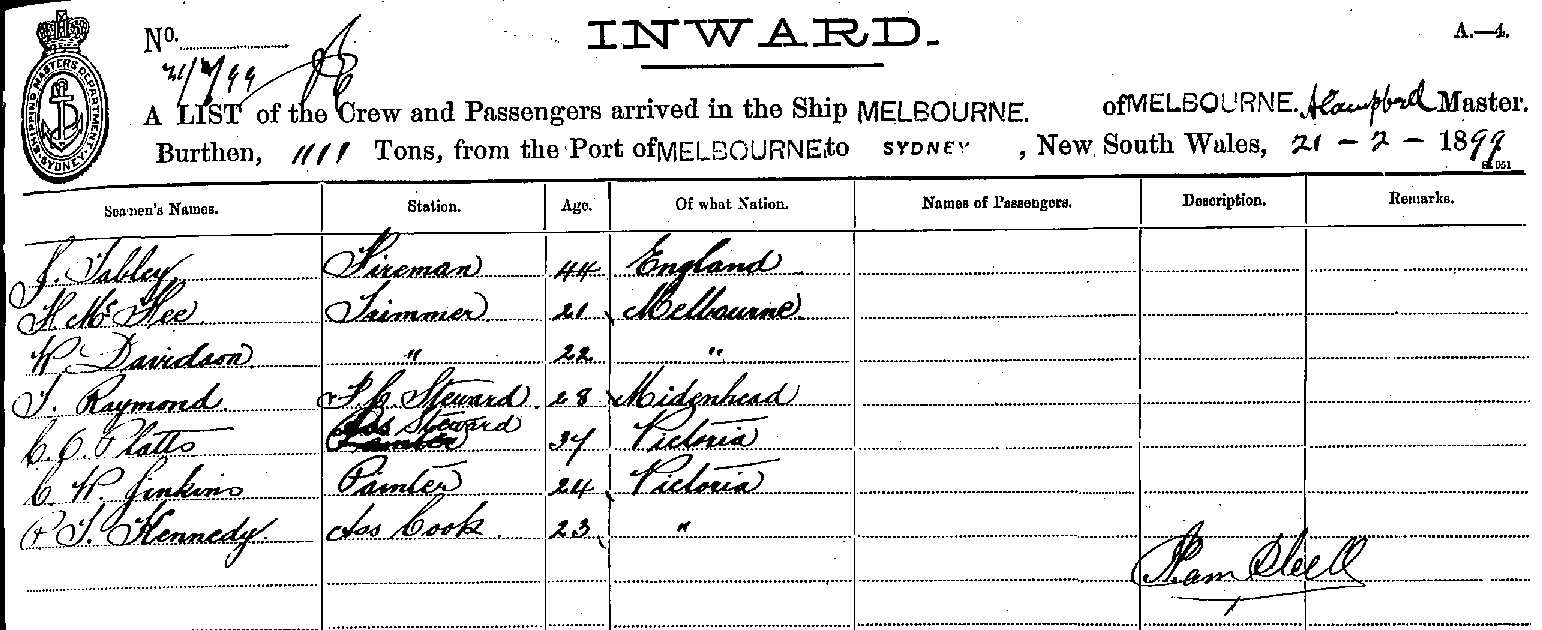 No.
INWARD.
A.—4.
21/2/99
SHIPPING MASTERS DEPARTMENT. SYDNEY.
A LIST of the Crew and Passengers arrived in the Ship MELBOURNE. of MELBOURNE. A Campbell Master.
Burthen, 1111 Tons, from the Port of MELBOURNE. to SYDNEY, New South Wales, 21 - 2 - 1899
Seamen's Names. Station. Age. Of what Nation. Names of Passengers. Description. Remarks.
J. Tabley Fireman 44 England
H McFee Trimmer 21 Melbourne
W Davidson " 22 "
T. Raymond F.C. Steward 28 Midenhead
C. O. Platts Ass Steward 37 Victoria
C W. Jenkins Painter 24 Victoria
P. T. Kennedy Ass Cook 23 "